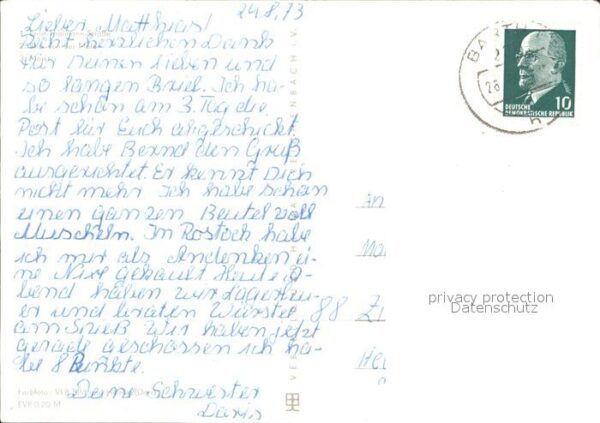 24.8.73
Lieber Matthias!
Recht herzlichen Dank
für Deinen lieben und
so langen Brief. Ich ha-
be schon am 3. Tag die
Post für Euch abgeschickt.
Ich habe Bernd den Gruß
ausgerichtet. Er kennt Dich
nicht mehr Ich habe schon
einen ganzen Beutel voll
Muscheln. In Rostock habe
ich mir als Andenken ei-
ne Nixe gekauft Heute A-
bend haben wir Lagerfeu-
er und braten Würste
am Spieß Wir haben jetzt
gerade geschossen ich ha-
be 8 Punkte.
Deine Schwester
Doris
EVP 0,20 M
BARTH
10
DEUTSCHE
DEMOKRATISCHE REPUBLIK
An
88
privacy protection
Datenschutz